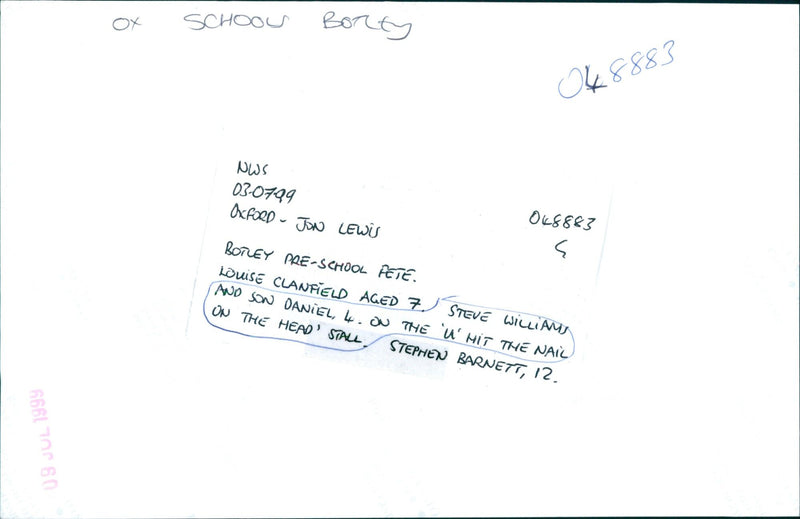 OX SCHOOLS BOTLEY
048883
NWS
03-07-99
OXFORD - JON LEWIS
048883
BOTLEY PRE-SCHOOL FETE.
LOUISE CLANFIELD AGED 7. STEVE WILLIAMS
AND SON DANIEL, 4. ON THE 'U' HIT THE NAIL
ON THE HEAD' STALL. STEPHEN BARNETT, 12.
09 JUL 1999